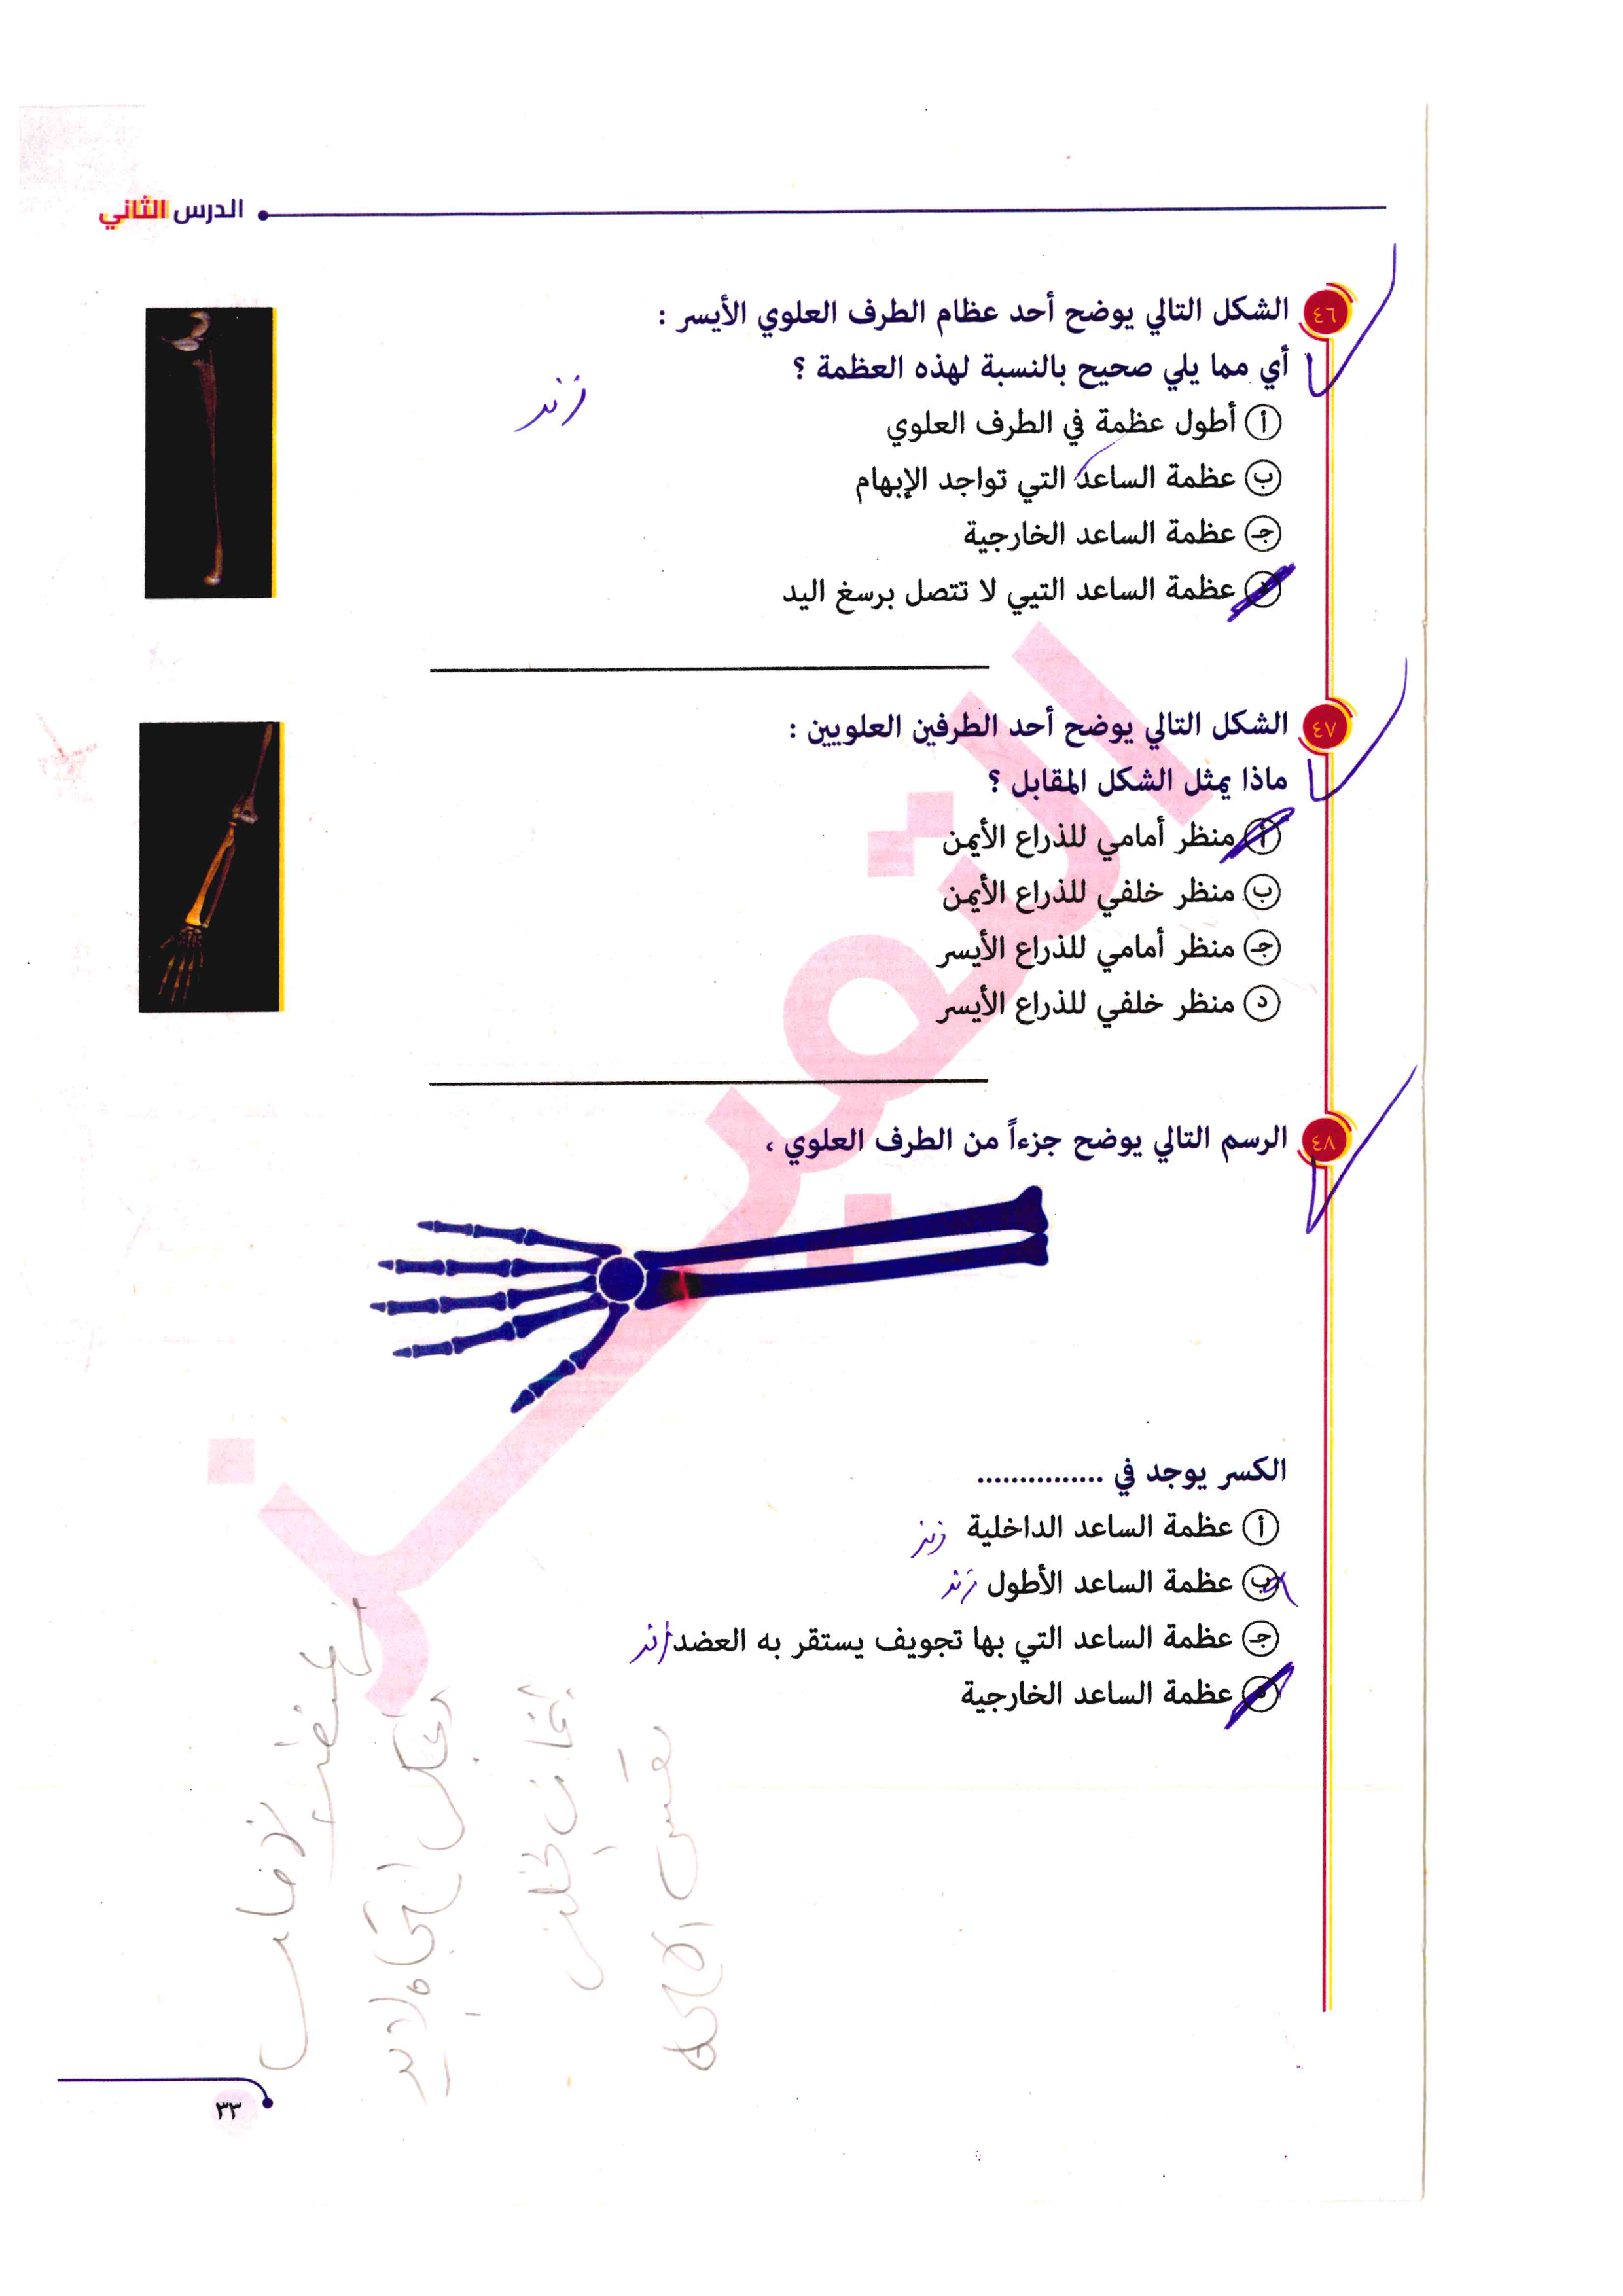 الدرس الثاني
٤٦ الشكل التالي يوضح أحد عظام الطرف العلوي الأيسر :
أي مما يلي صحيح بالنسبة لهذه العظمة ؟
زند
أ أطول عظمة في الطرف العلوي
ب عظمة الساعد التي تواجد الإبهام
جـ عظمة الساعد الخارجية
د عظمة الساعد التيي لا تتصل برسغ اليد
٤٧ الشكل التالي يوضح أحد الطرفين العلويين :
ماذا يمثل الشكل المقابل ؟
أ منظر أمامي للذراع الأيمن
ب منظر خلفي للذراع الأيمن
جـ منظر أمامي للذراع الأيسر
د منظر خلفي للذراع الأيسر
٤٨ الرسم التالي يوضح جزءاً من الطرف العلوي ،
الكسر يوجد في ...............
أ عظمة الساعد الداخلية زند
ب عظمة الساعد الأطول زند
جـ عظمة الساعد التي بها تجويف يستقر به العضد زند
د عظمة الساعد الخارجية
٣٣